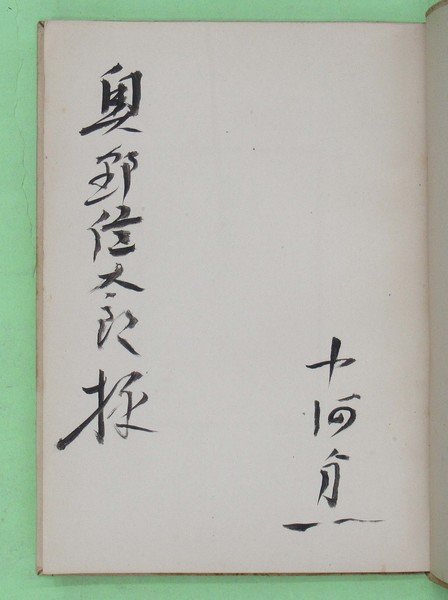 中河與一
奥野信太郎様